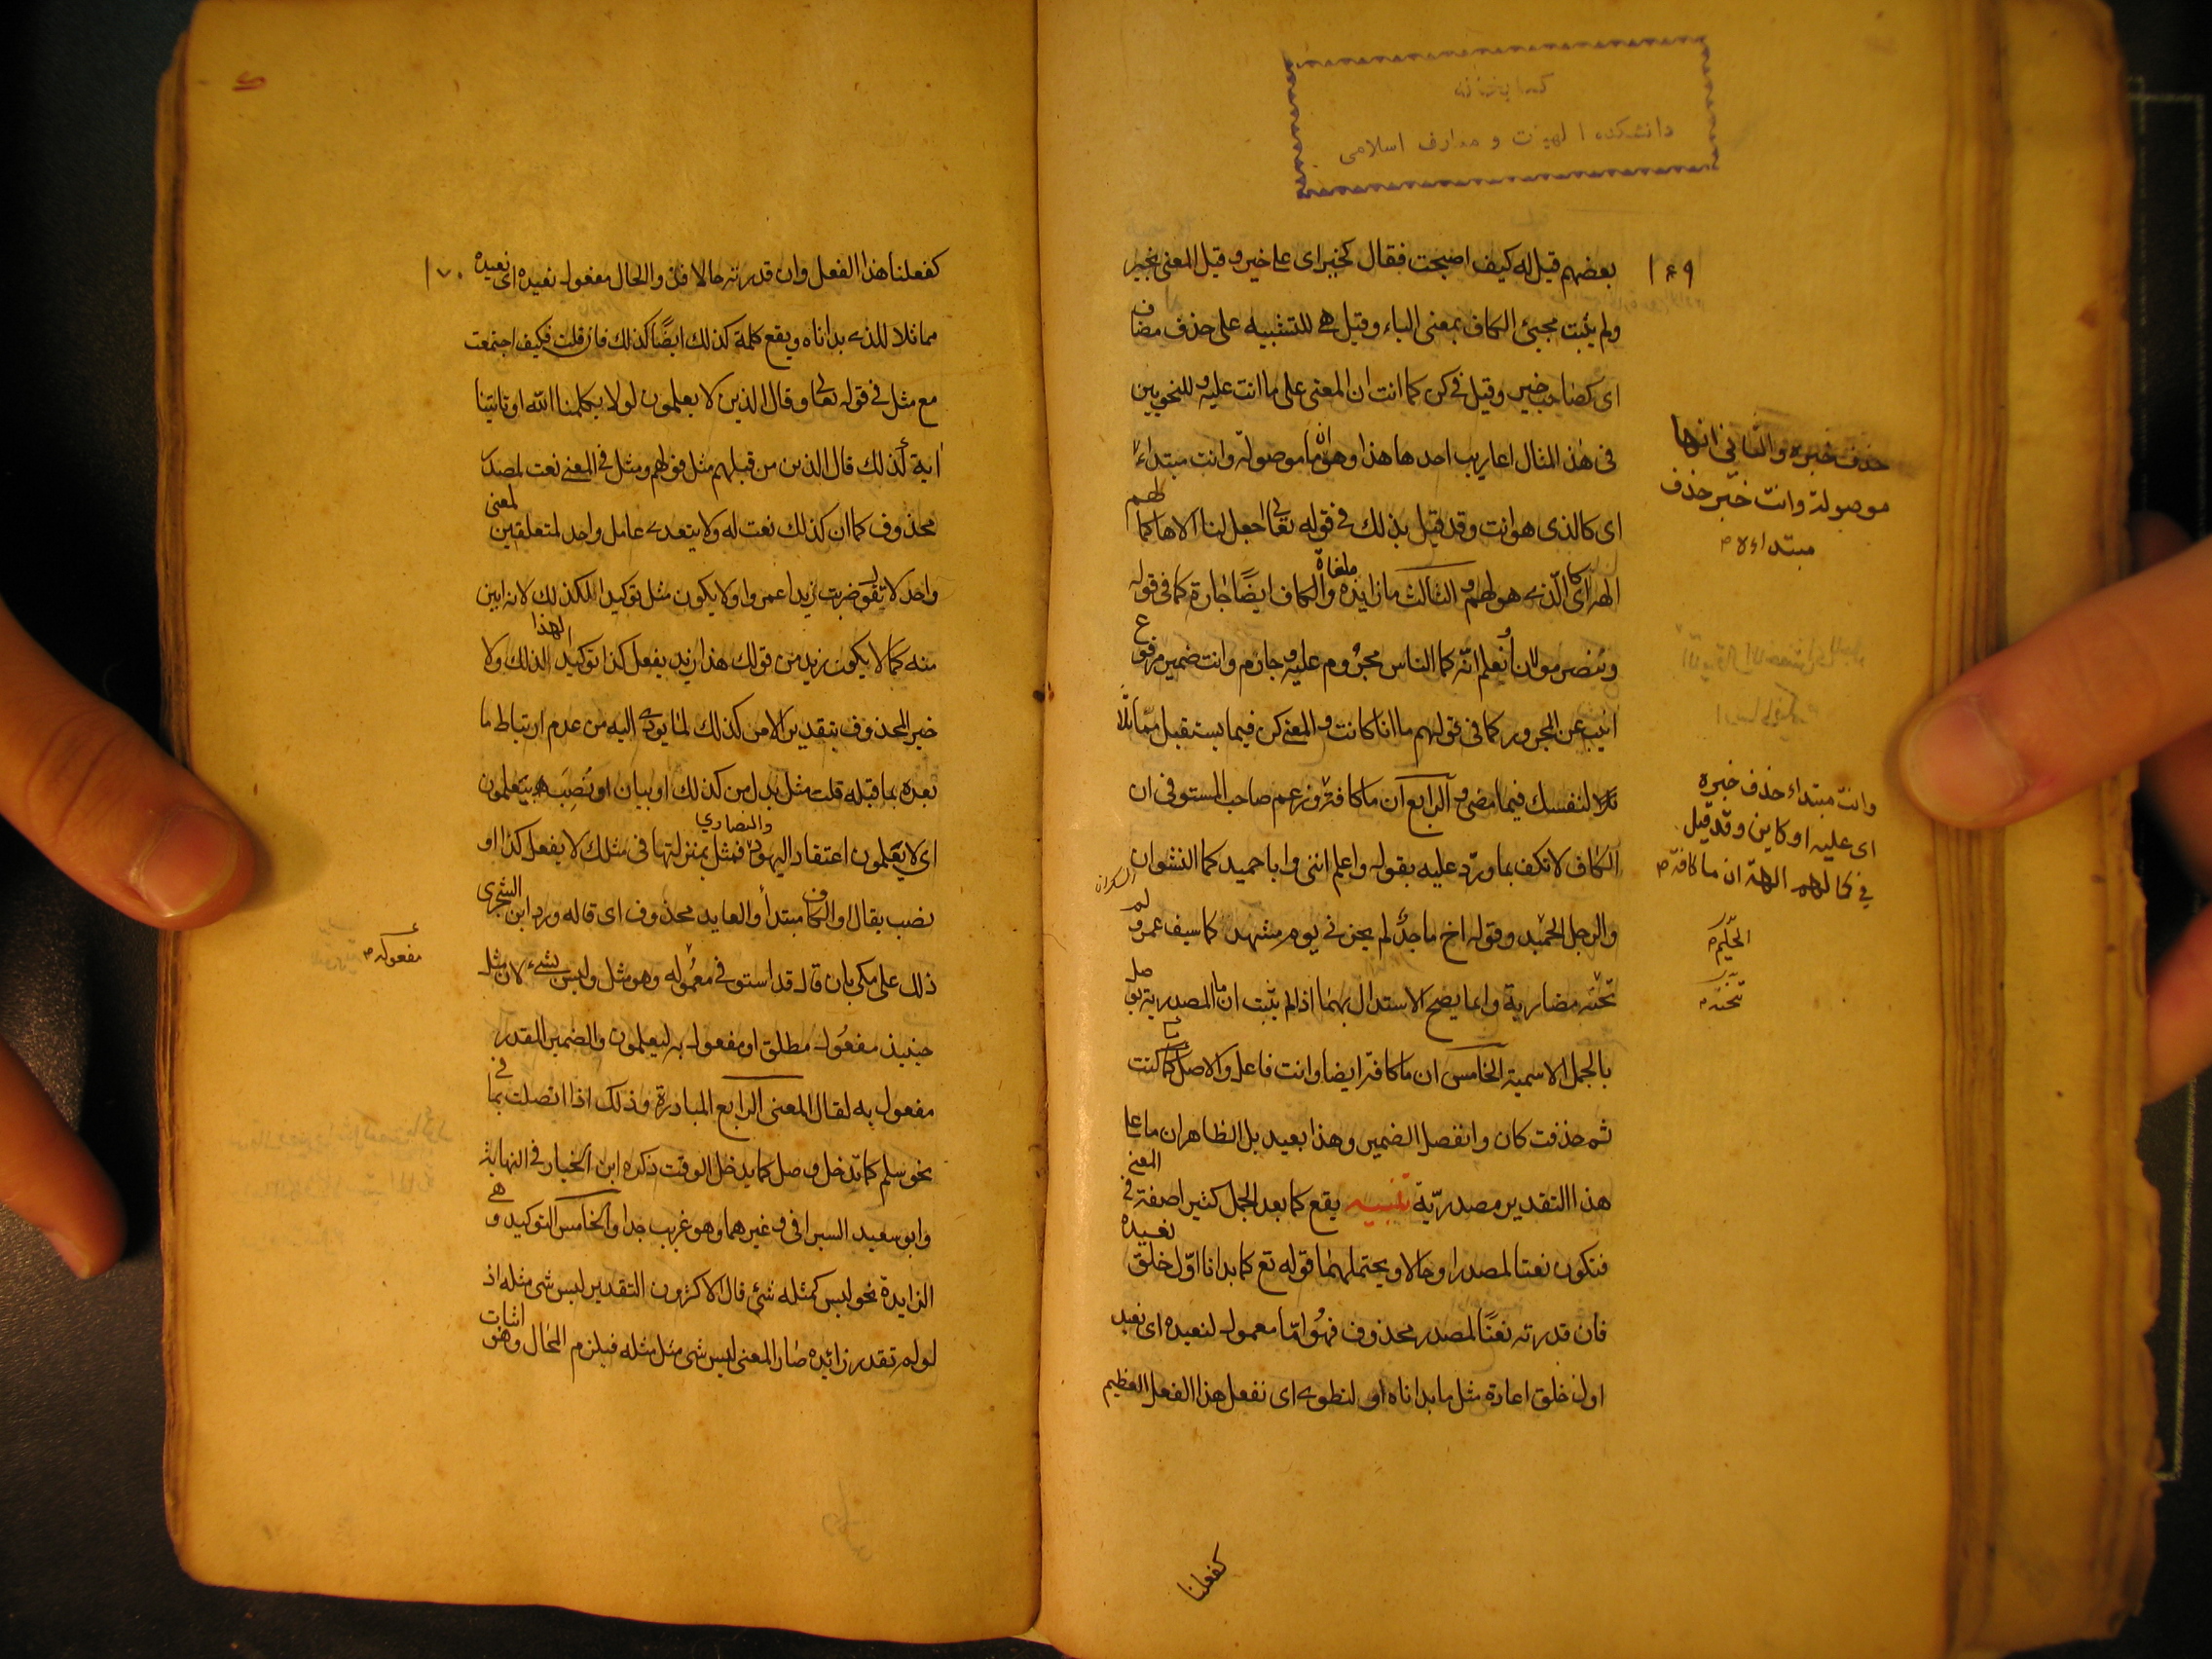 كتابخانه
دانشكده الهیات و معارف اسلامی
۱۶۹
بعضهم قيل له كيف اصبحت فقال كخير اى على خير وقيل المعنى بخير
ولم يثبت مجيئ الكاف بمعنى الباء وقيل هى للتشبيه على حذف مضاف
اى كصاحب خير وقيل فى كن كما انت ان المعنى على ما انت عليه وللنحويين
فى هذا المثال اعاريب احدها هذا وهو ان ما موصولة وانت مبتداء
حذف خبره والثانى انها
موصولة وانت خبر حذف
مبتداءه
اى كالذى هو انت وقد قيل بذلك فى قوله تعالى اجعل لنا الاها كما لهم
الهة اى كالذى هو لهم والثالث ما زايدة ملغاة والكاف ايضًا جارة كما فى قوله
وننصر مولانا ونعلم انّه كما الناس مجرُوم عليه وجارم وانت ضمير مرفوع
انيب عن المجرور كما فى قولهم ما انا كانت والمعنى كن فيما يستقبل مماثلا
لنفسك فيما مضى والرابع ان ما كافة وزعم صاحب المستوفى ان
وانت مبتداء حذف خبره
اى عليه او كاين وقد قيل
فى كما لهم الهة ان ما كافة
الكاف لا تكف بما وردّ عليه بقوله واعلم اننى وابا حميد كما النشوان
السكران
والرجل الحميد وقوله اخ ماجدٌ لم يخزنى يوم مشهد كما سيف عمرو لم
الحليم
تخنه مضاربة وانما يصح الاستدلال بهما اذا لم يثبت ان ما المصدرية توصل
تخنه
بالجمل الاسمية الخامس ان ما كافة ايضا وانت فاعل والاصل كما كنت
ثم حذفت كان وانفصل الضمير وهذا بعيد بل الظاهر ان ما على
هذا التقدير مصدريّة تنبيه يقع كما بعد الجمل كثيرا صفة فى المعنى
فتكون نعتا لمصدر او حالا ويحتملهما قوله تع كما بدانا اوّل خلق نعيده
فان قدرته نعتًا لمصدر محذوف فهُو امّا معمول لنعيده اى نعيد
اول خلق اعادة مثل ما بداناه او لنطوى اى نفعل هذا الفعل العظيم
كفعلنا
۱۷۰
كفعلنا هذا الفعل وان قدرته حالا فذو الحال مفعول نعيده اى نعيده
مماثلا للذى بداناه ويقع كلمة كذلك ايضًا كذلك فان قلت فكيف اجتمعت
مع مثل فى قوله تعالى وقال الذين لا يعلمون لولا يكلمنا الله او تاتينا
اية كذلك قال الذين من قبلهم مثل قولهم ومثل فى المعنى نعت لمصدر
محذوف كما ان كذلك نعت له ولا يتعدى عامل واحد لمتعلقين لمعنى
واحد لا تقول ضربت زيدا عمروا ولا يكون مثل توكيدا لكذلك لانه ابين
منه كما لا يكون زيد من قولك هذا زيد يفعل كذا توكيد لهذا لذلك ولا
خبر المحذوف بتقدير الامر كذلك لما يودى اليه من عدم ارتباط ما
بعده بما قبله قلت مثل بدل من كذلك او بيان او نُصِبَ بيعلمون
اى لا يعلمون اعتقاد اليهود والنصارى فمثل بمنزلتها فى مثلك لا يفعل كذا او
نصب بقال او الكاف مبتدأ والعايد محذوف اى قاله ورد ابن الشجرى
ذلك على مكى بان قال قد استوفى معمُوله وهو مثل وليس بشىء لان مثل
مفعوله
حينيذ مفعُول مطلق او مفعول به ليعلمون والضمير المقدر
مفعول به لقال المعنى الرابع المبادرة وذلك اذا اتصلت بما فى
نحو سلم كما تدخل وصل كما يدخل الوقت ذكره ابن الخباز فى النهاية
وابو سعيد السيرافى وغيرهما وهو غريب جدا والخامس التوكيد وهى
الزايدة نحو ليس كمثله شئ قال الاكثرون التقدير ليس شى مثله اذ
لو لم تقدر زائدة صار المعنى ليس شى مثل مثله فيلزم المحال وهو اثبات